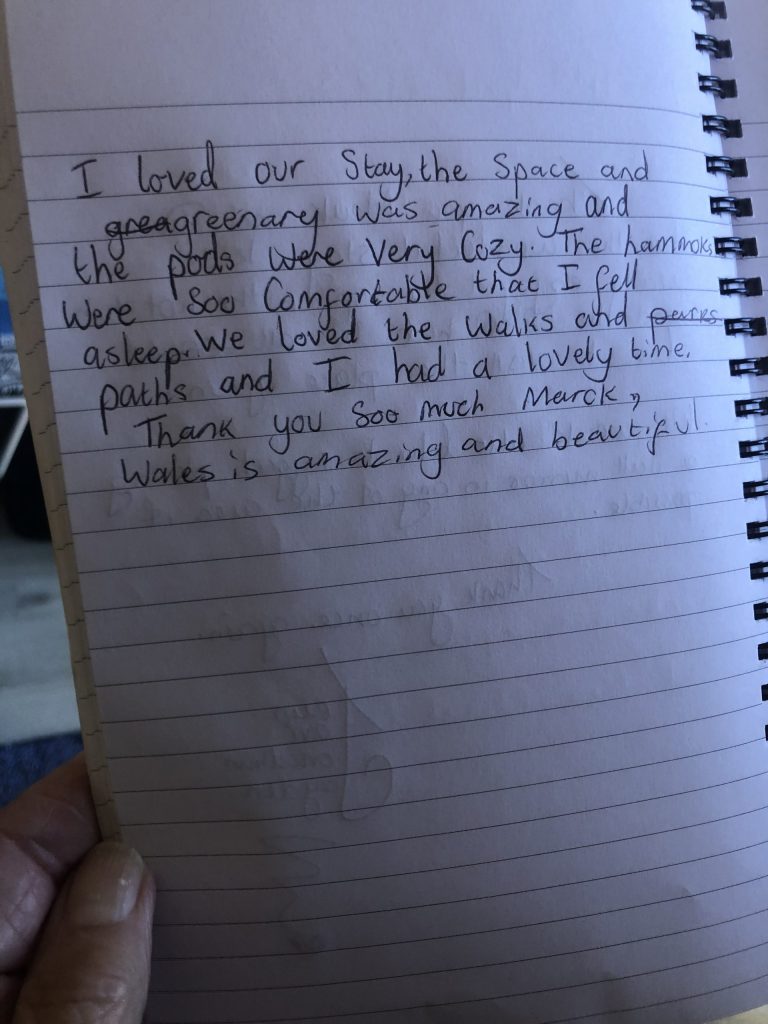 I loved our Stay, the Space and
greagreenary was amazing and
the pods were Very Cozy. The hammoks
Were Soo Comfortable that I fell
asleep. We loved the walks and parks
paths and I had a lovely time.
Thank you Soo much Marck,
Wales is amazing and beautiful.
thank you once again